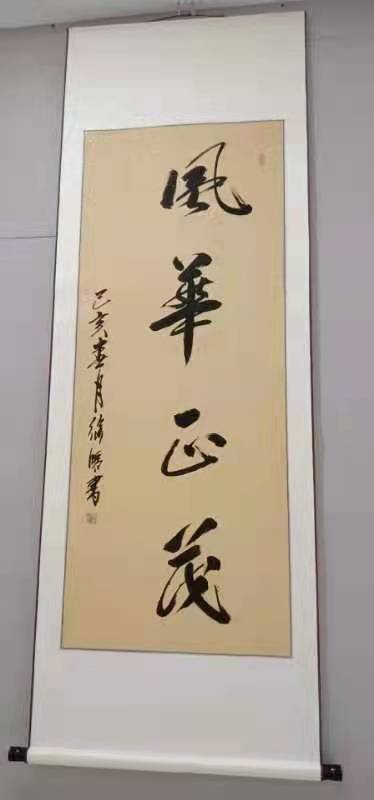 風華正茂
己亥春月徐浩書